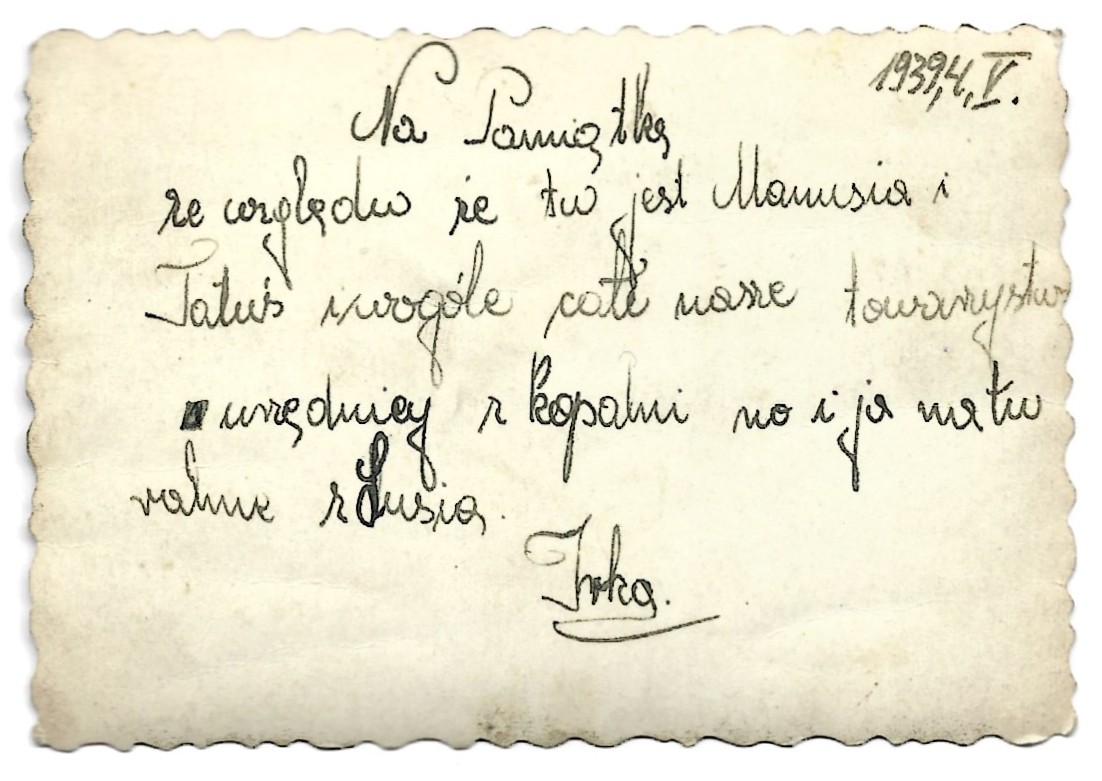 1939,4,V.
Na Pamiątkę
ze względu że tu jest Mamusia i
Tatuś i wogóle całe nasze towarzystwo
urzędnicy z kopalni no i ja natu
ralnie z Lusią.
Irka.